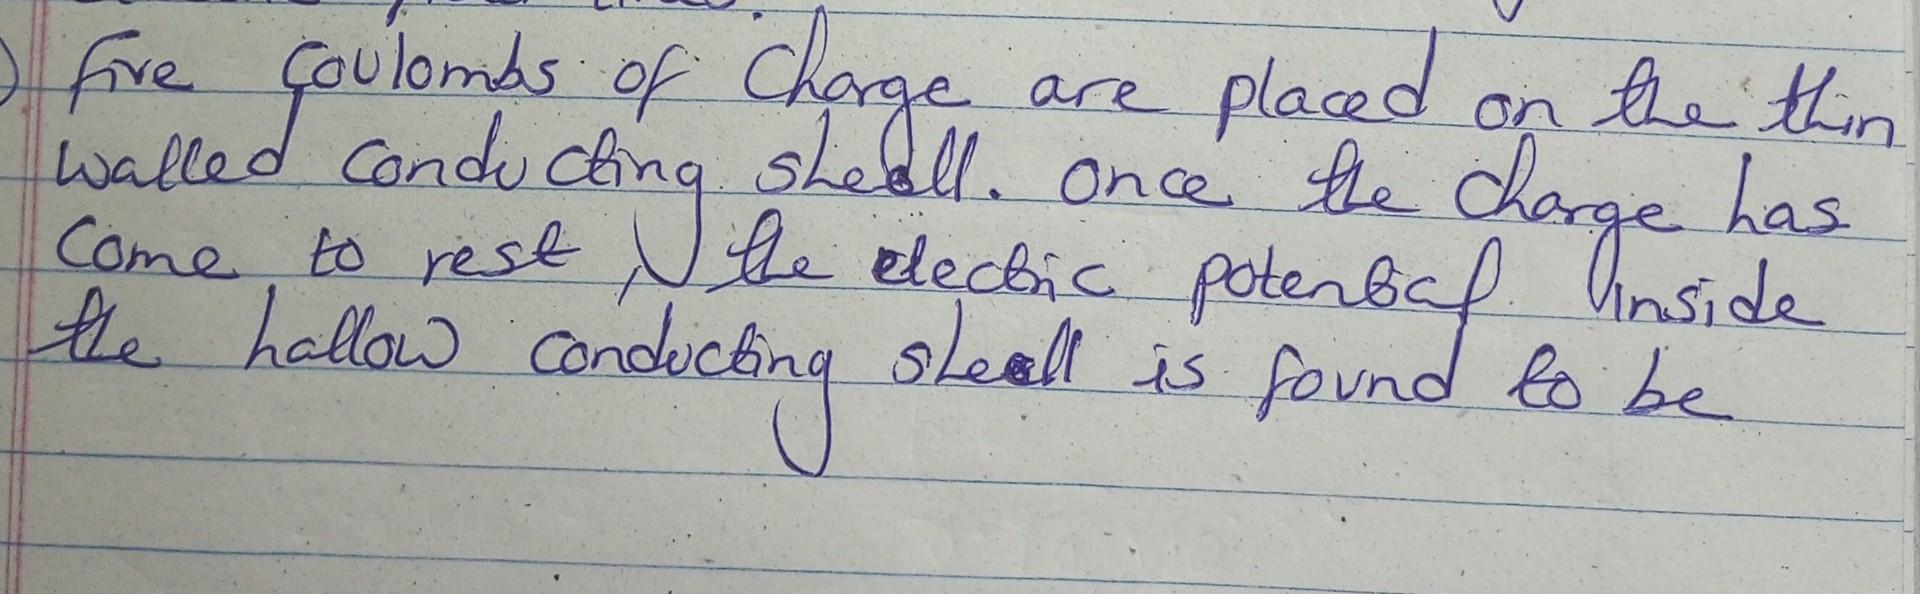 five Coulombs of Charge are placed on the thin
walled conducting shell. once the charge has
Come to rest, the electric potential inside
the hallow conducting shell is found to be